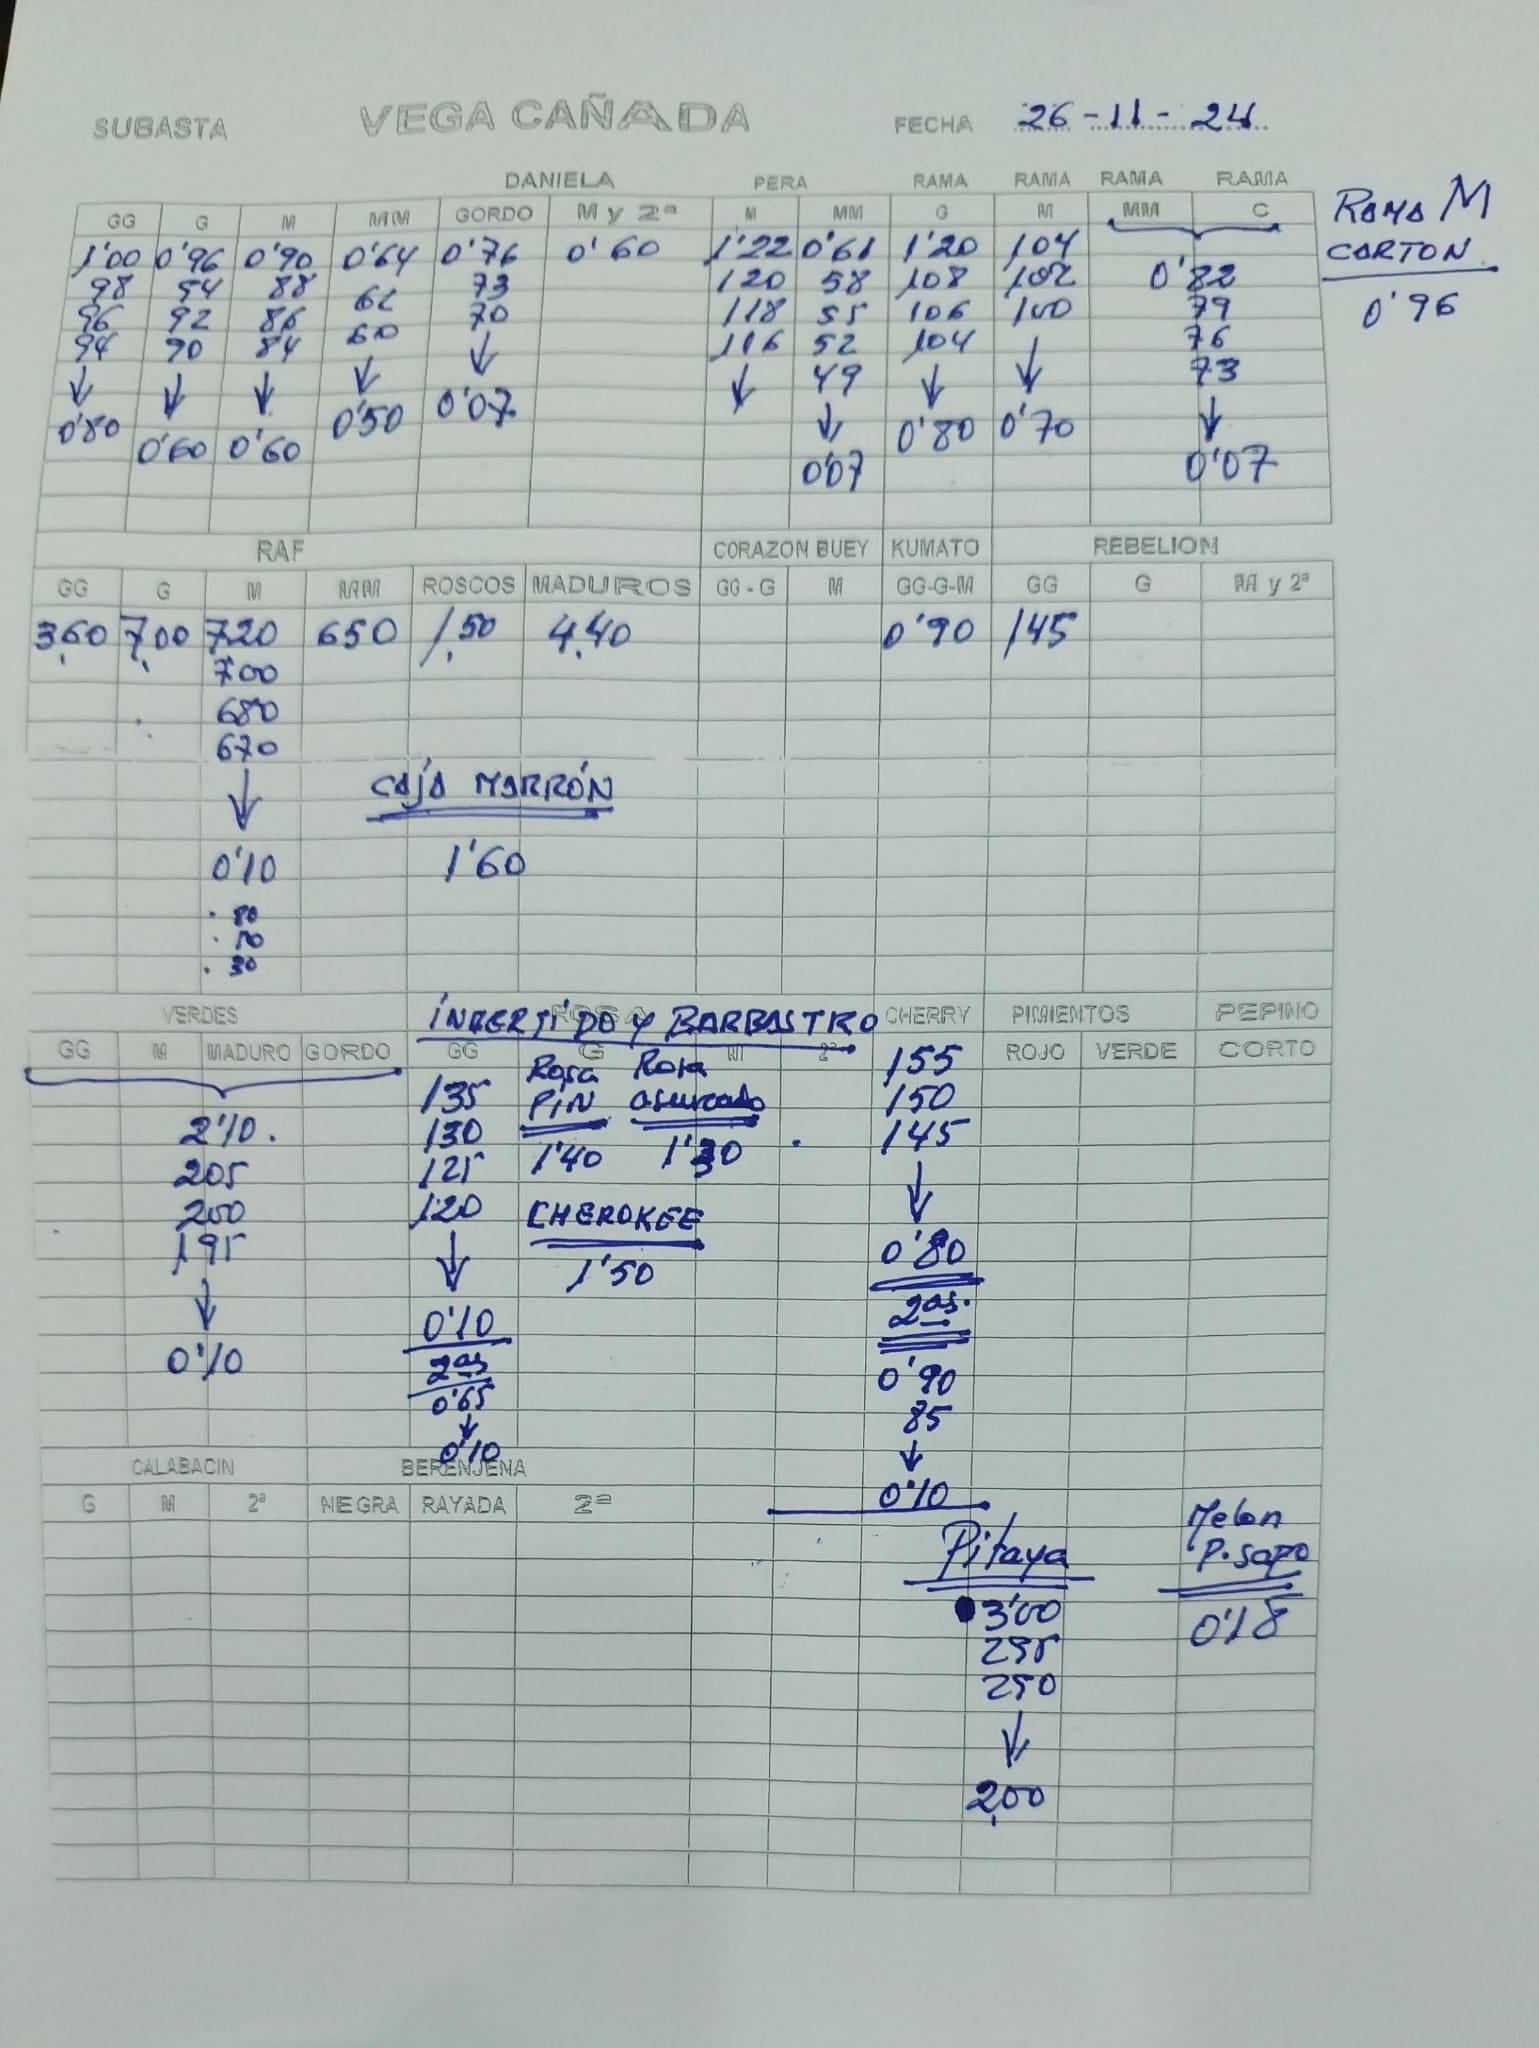 SUBASTA VEGA CAÑADA FECHA 26-11-24
DANIELA PERA RAMA RAMA RAMA RAMA
GG G M MM GORDO M y 2ª M MM G M MM C
RAMA M
CARTON
0'96
1'00 0'96 0'90 0'64 0'76 0'60 1'22 0'61 1'20 104 0'82
98 94 88 62 73 120 58 108 102 79
96 92 86 60 70 118 55 106 100 76
94 90 84 ↓ ↓ 116 52 104 ↓ 73
↓ ↓ ↓ 0'50 0'07 ↓ 49 ↓ 0'70 ↓
0'80 0'60 0'60 ↓ 0'80 0'07
0'07
RAF CORAZON BUEY KUMATO REBELION
GG G M MM ROSCOS MADUROS GG-G M GG-G-M GG G M y 2ª
3,60 7,00 7,20 650 1,50 4,40 0'90 145
700
680
670
↓
CAJA MARRÓN
0'10 1'60
80
50
30
VERDES INGERTIDO Y BARBASTRO CHERRY PIMIENTOS PEPINO
GG M MADURO GORDO GG G M 2ª ROJO VERDE CORTO
2'10.
205
200
195
↓
0'10
135
130
125
120
↓
0'10
2as
0'65
↓
0'10
Rosa
PIN
1'40
Rosa
asurcado
1'30
CHEROKEE
1'50
155
150
145
↓
0'80
2as.
0'90
85
↓
0'10
CALABACIN BERENJENA
G M 2ª NEGRA RAYADA 2ª
Pitaya
3'00
295
290
↓
2,00
Melon
P. sapo
0'18